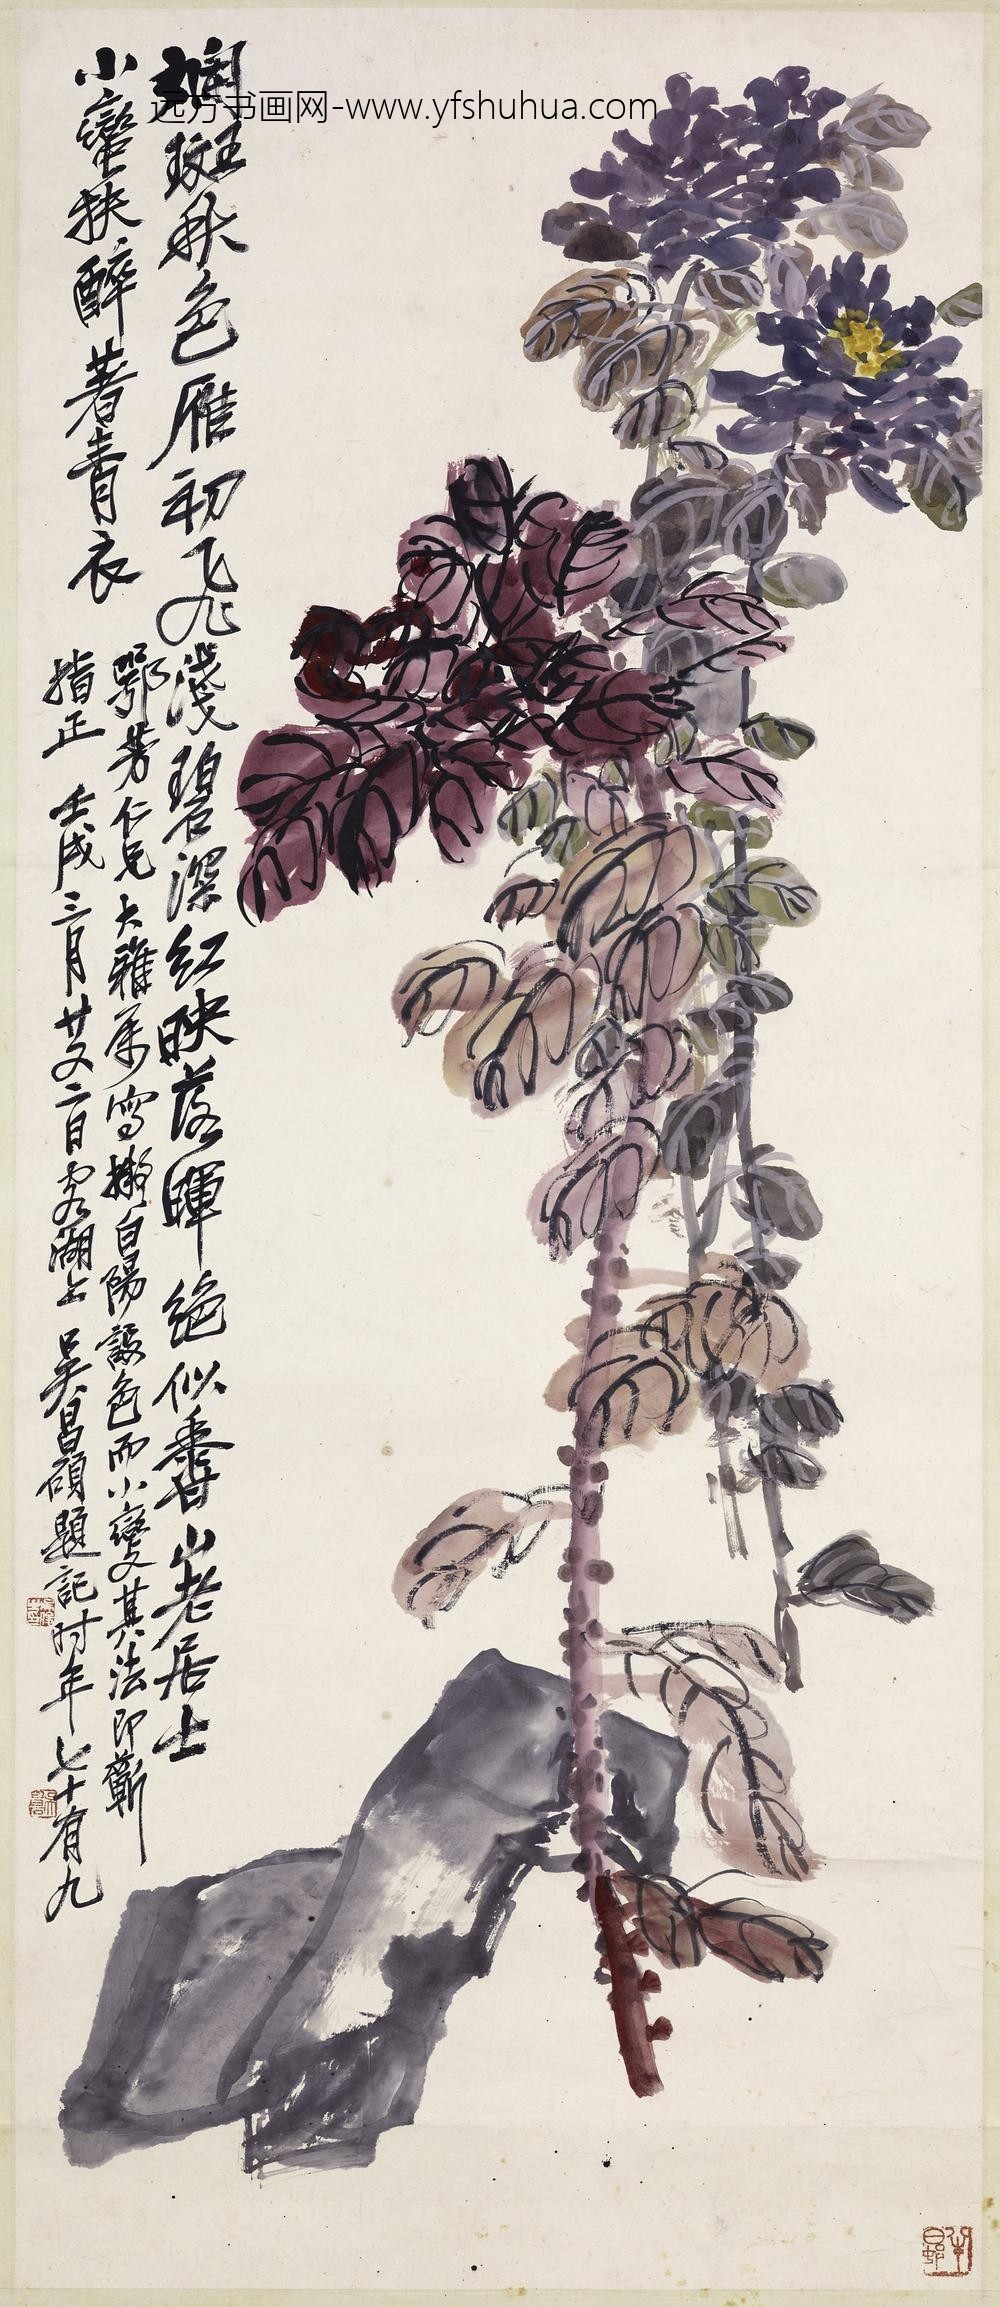 斓斑秋色雁初飞浅碧深红映落晖绝似香山老居士
小蛮扶醉著青衣
鄂芳仁兄大雅属写拟白阳设色而小变其法即蕲
指正 壬戌三月廿又二日客湖上 吴昌硕题记时年七十有九
远方书画网-www.yfshuhua.com